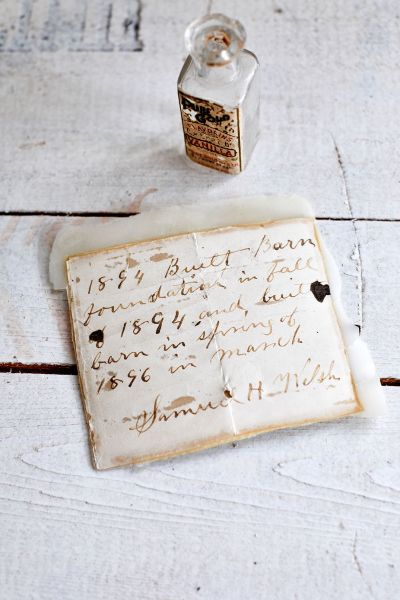 VANILLA
1894 Built Barn
foundation in fall
of 1894 and built
barn in spring of
1896 in march
Samuel H Welsh